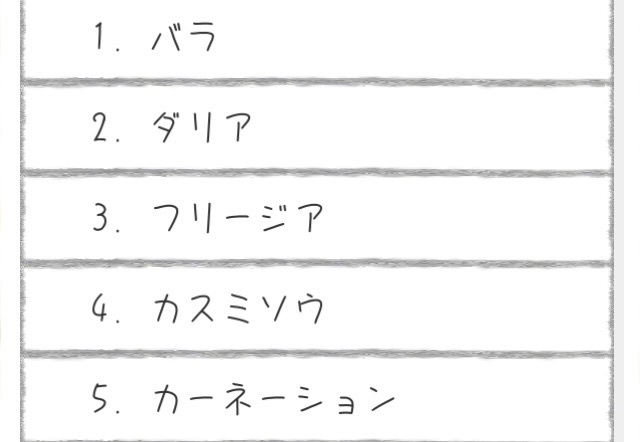 1. バラ
2. ダリア
3. フリージア
4. カスミソウ
5. カーネーション